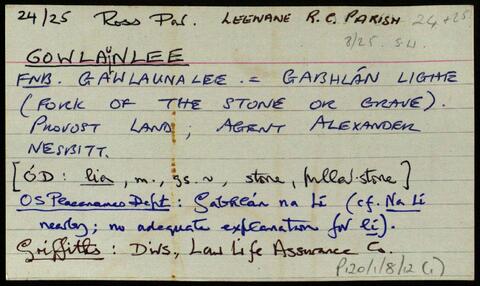 24/25 Ross Par. LEENANE R.C. PARISH 24+25
3/25. S.W.
GOWLAUNLEE
FNB. GAWLAUNALEE. = GABHLÁN LIGHE
(FORK OF THE STONE OR GRAVE).
PROVOST LAND; AGENT ALEXANDER
NESBITT.
[ÓD: lia, m., gs. ~, stone, pillar-stone]
OS Placenames Dept: Gabhlán na Lí (cf. Na Lí
nearby; no adequate explanation for lí).
Griffiths: Dirs, Law Life Assurance Co.
P120/1/8/12 (1)